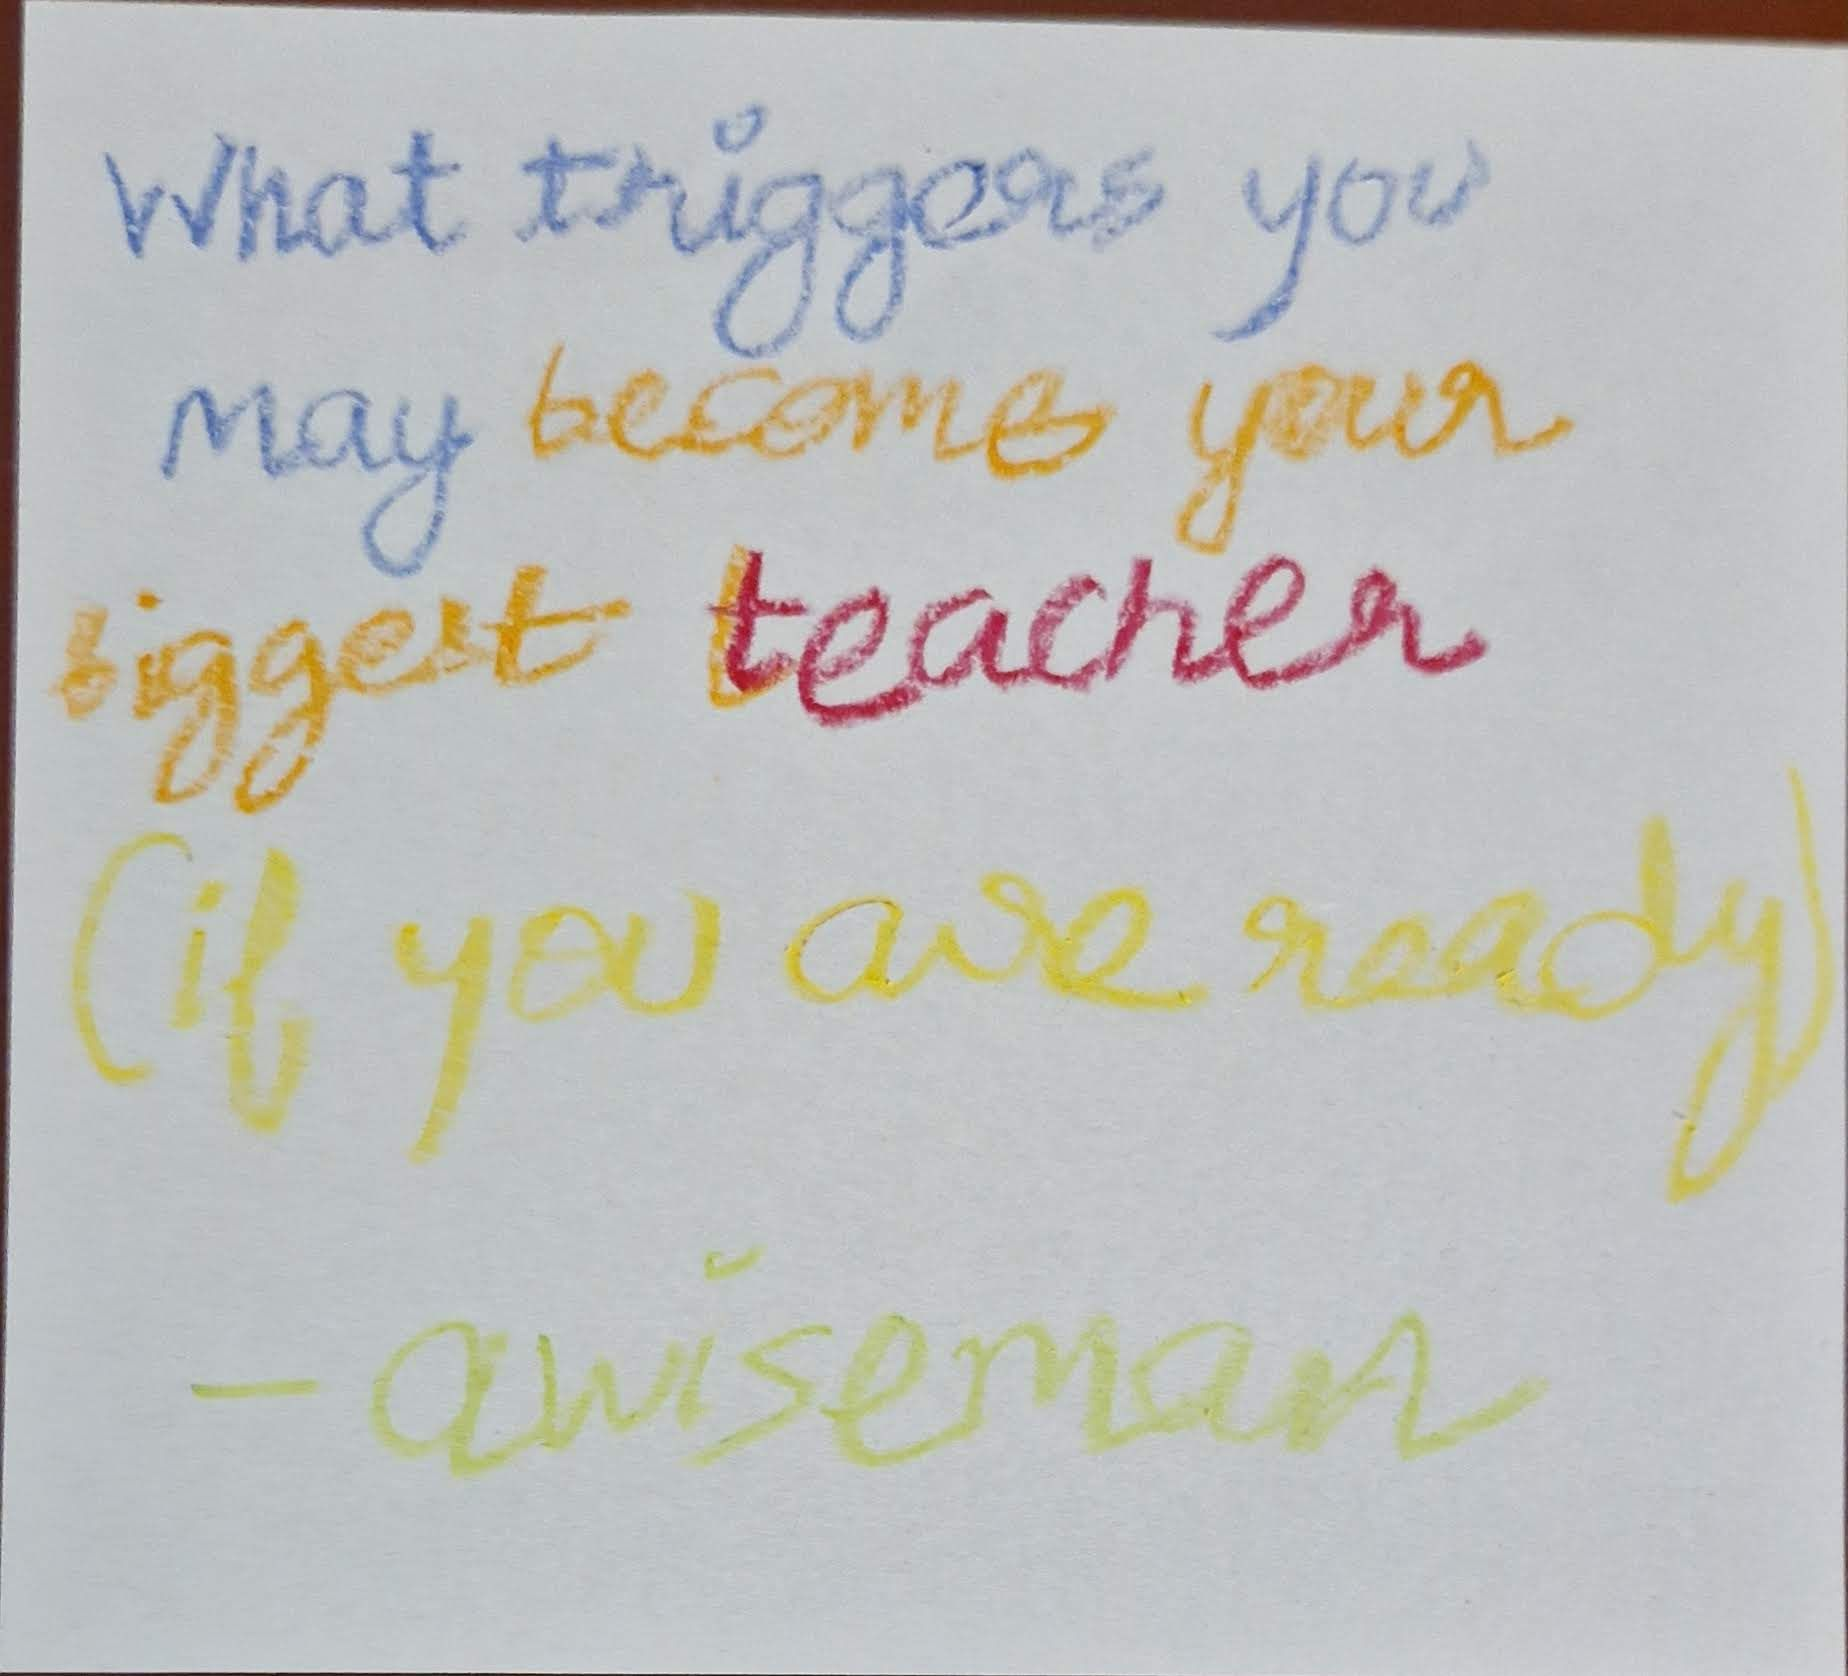 What triggers you
may become your
biggest teacher
(if you are ready)
- awiseman